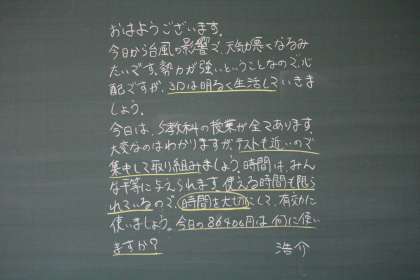 おはようございます。
今日から台風の影響で、天気が悪くなるみ
たいです。勢力が強いということなので、心
配ですが、3Dは明るく生活していきま
しょう。
今日は、5教科の授業が全てあります。
大変なのはわかりますが、テストも近いので
集中して取り組みましょう。時間は、みん
な平等に与えられます。使える時間も限ら
れているので、時間を大切にして、有効に
使いましょう。今日の86400円は何に使い
ますか?
浩介